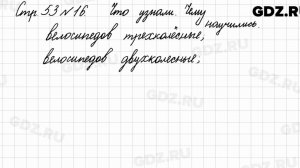 GDZ.RU
Стр. 53 № 16. Что узнали. Чему
научились
велосипедов трехколёсные,
велосипедов двухколесные,